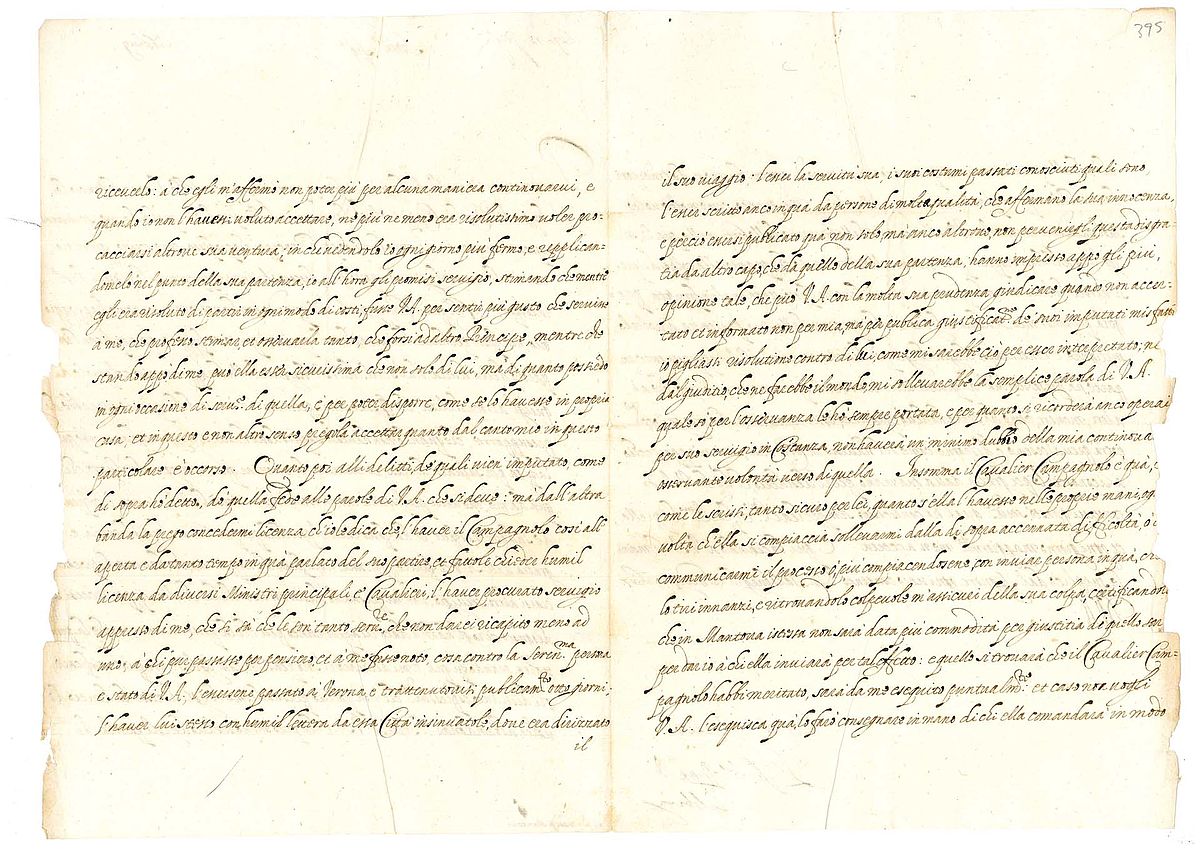 riceverlo: à che egli m'affermò non poter più per alcuna maniera continovarvi, e
quando io non l'havessi voluto accettare, nè più ne meno era risolutissimo voler pro=
cacciarsi altrove sua ventura; in che vedendolo io ogni giorno più fermo, e repplican=
domelo nel punto della sua partenza, io all'hora gli promisi servigio, stimando che mentre
egli era risoluto di partir in ogni modo di costì, fusse V.A. per sentir più gusto che servisse
à me, che professo stimar et osservarla tanto, che forsi ad altro Prencipe, mentre che
stando appo di me, può ella esser sicurissima che non solo di lui, mà di quanto possiedo
in ogni occasione di serv.º di quella, è per poter disporre, come se lo havesse in propria
casa, et in questo e non altro senso pregola accettar quanto dal canto mio in questo
particolare è occorso. Quanto poi alli delitti de quali vien imputato, come
di sopra hò detto, dò quella fede alle parole di V.A. che si deve: mà dall'altra
banda la prego concedermi licenza ch'io le dica che l'haver il Campagnolo così all'
aperta e da tanto tempo in qua parlato del suo partire, et fattole chieder humil
licenza da diversi Ministri principali e Cavalieri, l'haver procurato servigio
appresso di me, che si sà che le son tanto serv.re, che non darei ricapito meno ad
uno, à chi pur passasse per pensiero, et à me fusse noto, cosa contro la Seren.ma persona
e stato di V.A. l'essersene passato à Verona, e trattenutovisi publicam.te otto giorni;
l'haver lui stesso con humil lettera da essa Città insinuatole, dove era dirizzato
il
395
il suo viaggio; l'esser la servitù sua, i suoi costumi passati conosciuti quali sono,
l'esser scritto anco in quà da persone di molta qualità, che affermano la sua innocenza,
e perciò essersi publicato quà non solo, ma anco altrove, non pervenirgli questa disgra=
tia da altro capo, che dà quello della sua partenza, hanno impresso appo gli più,
opinione tale, che può V.A. con la molta sua prudenza giudicare quando non accer=
tato et informato non per mia, mà per publica giustificat.ne de' suoi imputati misfatti
io pigliassi risolutione contro di lui, come mi sarebbe ciò per esser interpretato; nè
dal giuditio, che ne farebbe il mondo, mi sollevarebbe la semplice parola di V.A.
quale sò per l'osservanza le hò sempre portata, e per quanto si ricorderà anco operai
per suo servigio in Costanza, non haverà un minimo dubbio della mia continova
osservante volontà verso di quella. Insomma il Cavalier Campagnolo è quà, e
come le scrissi, tanto sicuro per lei, quanto s'ella l'havesse nelle proprie mani, ogni
volta ch'ella si compiaccia sollevarmi dalla di sopra accennata difficoltà, ò
communicarmi il processo, ò, più compiacendosene, con inviar persona in quà, che
lo tri innanzi, e ritrovandolo colpevole m'assicuri della sua colpa, certificandola
che in Mantova istessa non sarà data più commodità per giustitia di quello son
per dar io à chi ella inviarà per tal effetto: e quello si trovarà che il Cavalier Cam=
pagnolo habbi meritato, sarà da me esequito puntualm.te: et caso non vogli
V.A. l'esequisca quà, lo farò consegnare in mano di chi ella comandarà in modo